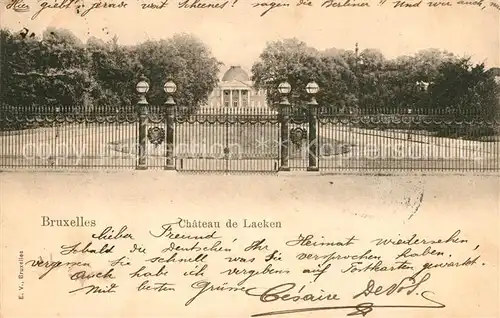 Hier giebt's gerade was Schönes! sagen die Berliner! Und wie auch,
Bruxelles
Château de Laeken
E. V., Bruxelles
Lieber Freund
Sobald die Deutschen Ihr Heimat wiedersehen,
vergessen Sie schnell was Sie versprochen haben.
Auch habe ich vergebens auf Postkarten gewartet.
Mit besten Grüsse Césaire DeVos.